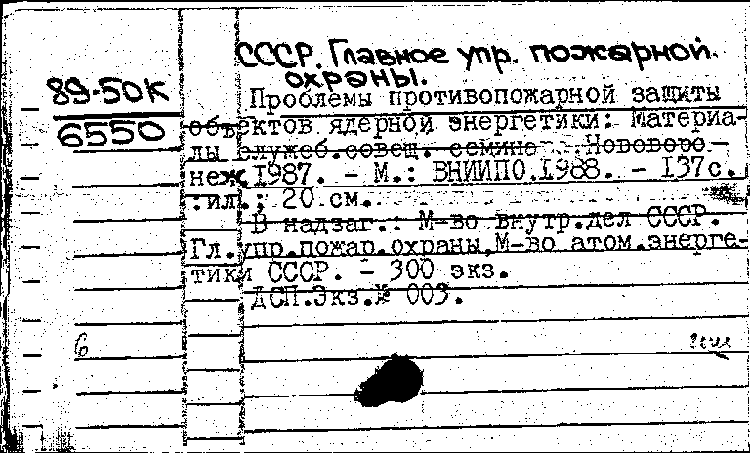 СССР. Главное упр. пожарной
охраны.
89-50К
6550
Проблемы противопожарной защиты
объектов ядерной энергетики: Материа-
лы служеб.совещ. семина Нововоро-
неж,1987. - М.: ВНИИПО.1988. - 137с.
:ил.; 20 см.
В надзаг.: М-во внутр.дел СССР.
Гл.упр.пожар.охраны,М-во атом.энерге-
тики СССР. - 300 экз.
ДСП.Экз.№ 003.
6